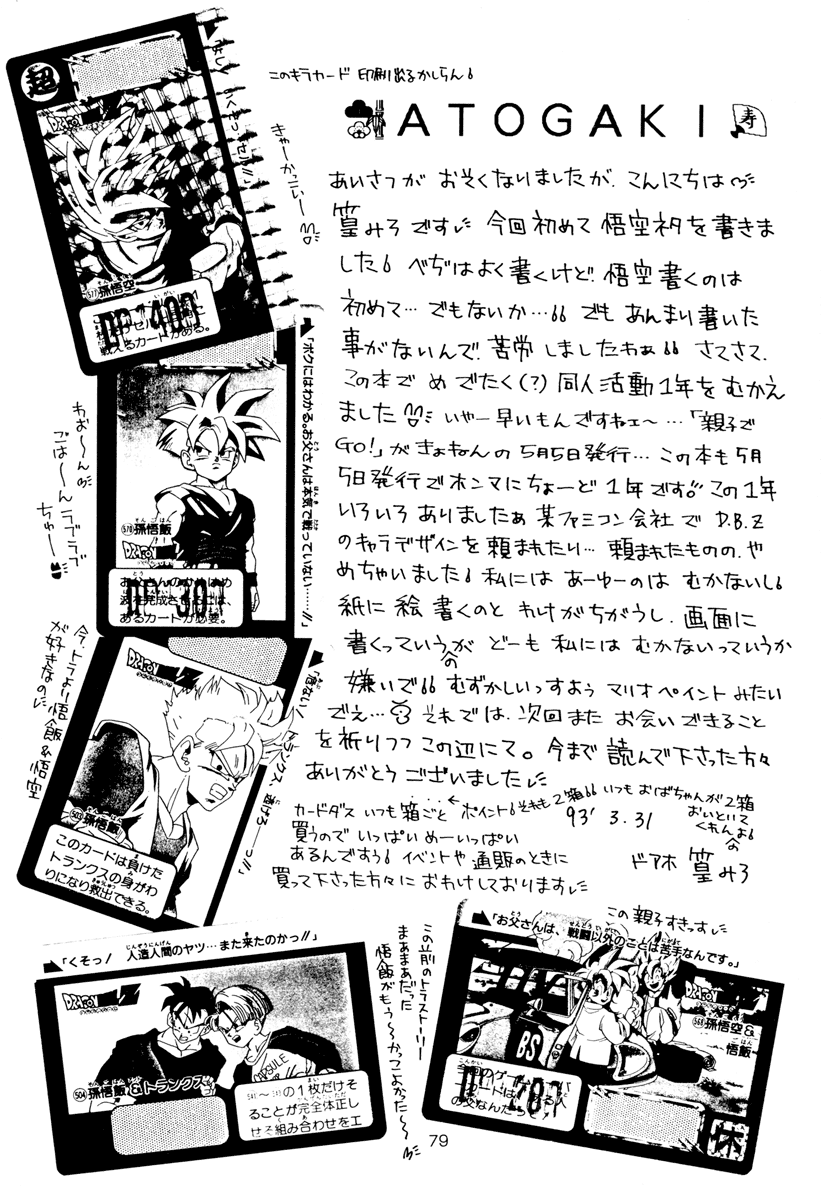 このキラカード 印刷出るかしらん
ATOGAKI
寿
あいさつが おそくなりましたが、こんにちは
篁みろです 今回初めて 悟空ネタを書きま
した べぢはよく書くけど、悟空書くのは
初めて…でもないか… でも あんまり書いた
事がないんで、苦労しましたわぁ さてさて、
この本で めでたく(?)同人活動1年をむかえ
ました いやー早いもんですねェ〜…「親子で
GO!」がきょねんの5月5日発行…この本も5月
5日発行でホンマにちょーど1年です!! この1年
いろいろありましたぁ 某ファミコン会社で D.B.Z
のキャラデザインを頼まれたり… 頼まれたものの、や
めちゃいました 私には あーゆーのは むかないし
紙に 絵 書くのと わけがちがうし、画面に
書くっていうのが どーも 私には むかないっていうか
嫌いで むずかしいっすよう マリオペイントみたい
でえ… それでは、次回また お会いできること
を祈りつつ この辺にて。今まで 読んで下さった方々
ありがとう ございました
93' 3.31
ドアホ 篁みろ
カードダス いつも箱ごと ポイント それも2箱 いつも おばちゃんが2箱
おいといて
くれんのよ
買うので いっぱいめーいっぱい
あるんですぅ イベントや通販のときに
買って下さった方々に おわけしております
きゃーかっこいー
超
577 孫悟空
戦えるカードがある。
わお〜ん
ごは〜んラブラブ
ちゅー
「ボクにはわかる。お父さんは本気で戦っていない……!!」
578 孫悟飯
あるカードが必要。
今、トラより悟飯&悟空
が好きなの
トランクス、逃げろーーっ!!」
503 孫悟飯
このカードは負けた
トランクスの身がわ
りになり救出できる。
「くそっ! 人造人間のヤツ…また来たのかっ!!」
504 孫悟飯&トランクス
CAPSULE
の1枚だけそ
ることが完全体正し
せる組み合わせをエ
この立前のトラストーリー
まあまあだった
悟飯がもう〜かっこよかった〜
この親子すきっす
「お父さんは、戦闘以外のことは苦手なんです。」
568 孫悟空&
悟飯
BS
の父なんだっ
休
79